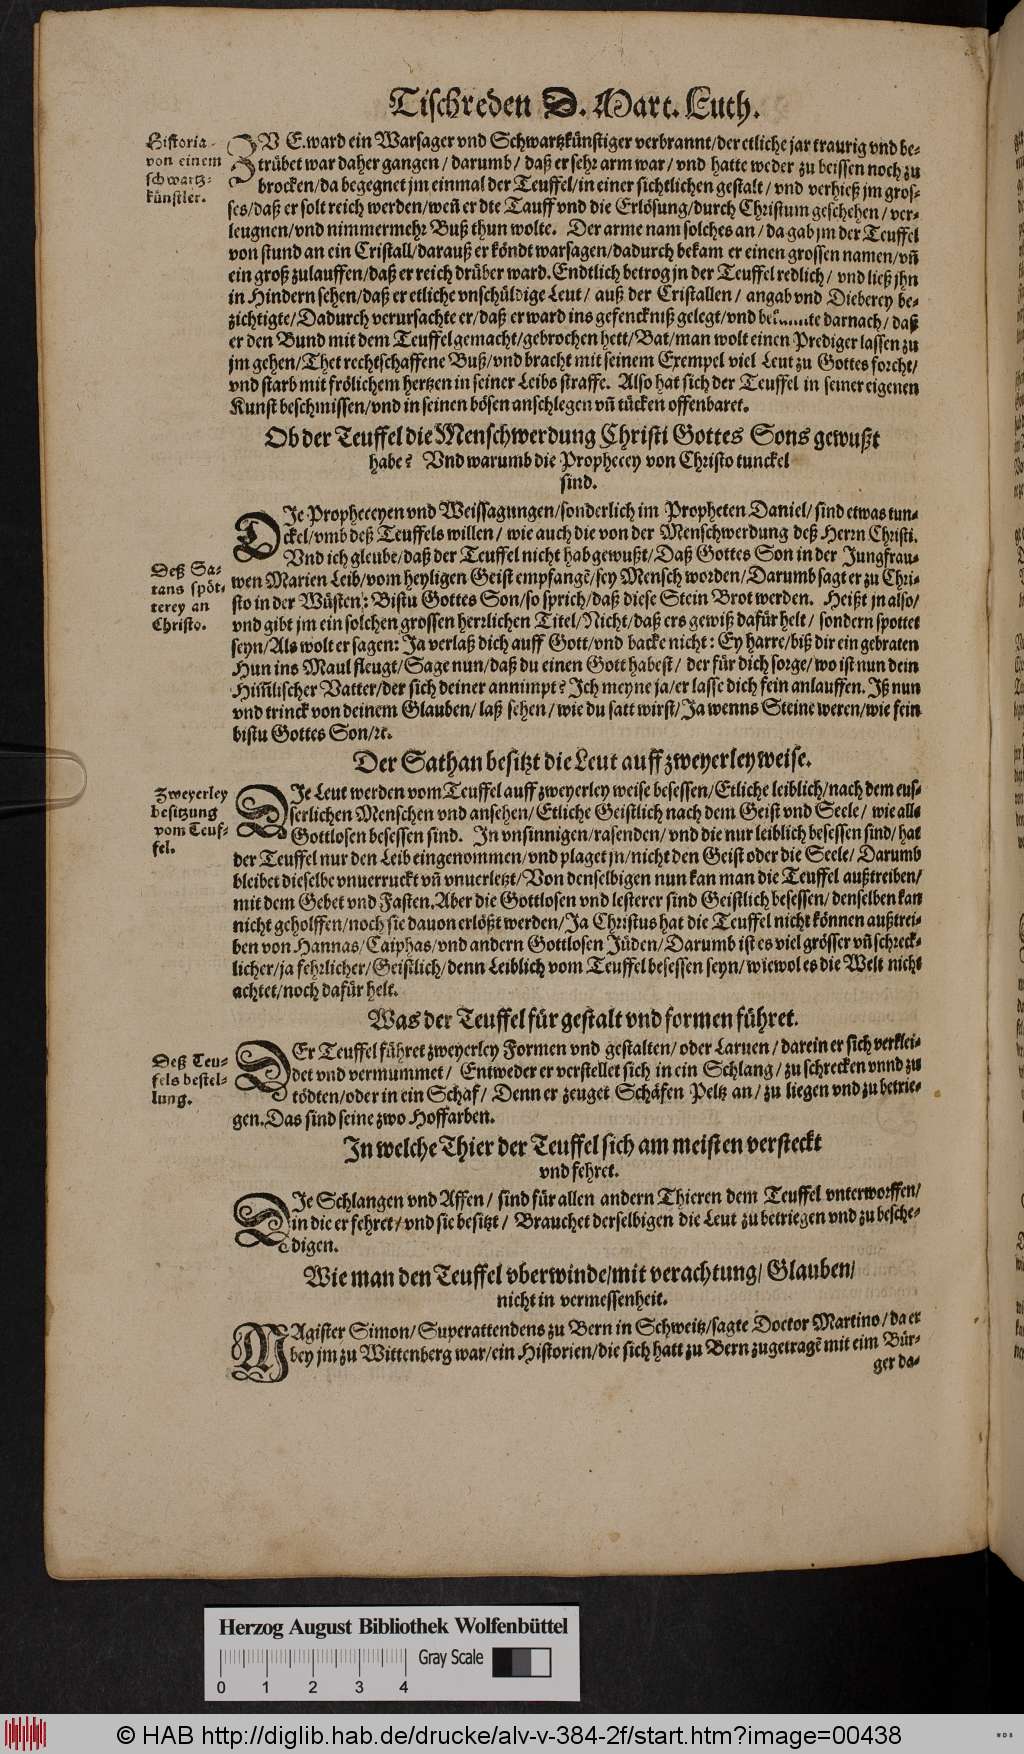 Tischreden D. Mart. Luth.
Historia
von einem
schwartz-
künstler.
ZV E. ward ein Warsager vnd Schwartzkünstiger verbrannt/der etliche jar traurig vnd be-
trübet war daher gangen/ darumb/ daß er sehr arm war/ vnd hatte weder zu beissen noch zu
brocken/da begegnet jm einmal der Teuffel/in einer sichtlichen gestalt/ vnd verhieß jm gros-
ses/daß er solt reich werden/weñ er dte Tauff vnd die Erlösung/durch Christum geschehen/ ver-
leugnen/vnd nimmermehr Buß thun wolte. Der arme nam solches an/ da gab jm der Teuffel
von stund an ein Cristall/darauß er köndt warsagen/dadurch bekam er einen grossen namen/vñ
ein groß zulauffen/daß er reich drüber ward. Endtlich betrog jn der Teuffel redlich/ vnd ließ jhn
in Hindern sehen/daß er etliche vnschüldige Leut/ auß der Cristallen/ angab vnd Dieberey be-
zichtigte/Dadurch verursachte er/daß er ward ins gefenckniß gelegt/vnd darnach/ daß
er den Bund mit dem Teuffel gemacht/gebrochen hett/Bat/man wolt einen Prediger lassen zu
jm gehen/Thet rechtschaffene Buß/vnd bracht mit seinem Exempel viel Leut zu Gottes forcht/
vnd starb mit frölichem hertzen in seiner Leibs straffe. Also hat sich der Teuffel in seiner eigenen
Kunst beschmissen/vnd in seinen bösen anschlegen vñ tücken offenbaret.
Ob der Teuffel die Menschwerdung Christi Gottes Sons gewußt
habe? Vnd warumb die Prophecey von Christo tunckel
sind.
DJe Propheceyen vnd Weissagungen/sonderlich im Propheten Daniel/ sind etwas tun-
ckel/vmb deß Teuffels willen/ wie auch die von der Menschwerdung deß Herrn Christi.
Vnd ich gleube/daß der Teuffel nicht hab gewußt/Daß Gottes Son in der Jungfrau-
Deß Sa-
tans spöt-
terey an
Christo.
wen Marien Leib/vom heyligen Geist empfangē/sey Mensch worden/Darumb sagt er zu Chri-
sto in der Wüsten: Bistu Gottes Son/so sprich/daß diese Stein Brot werden. Heißt jn also/
vnd gibt jm ein solchen grossen herrlichen Titel/Nicht/daß ers gewiß dafür helt/ sondern spottet
seyn/Als wolt er sagen: Ja verlaß dich auff Gott/vnd backe nicht: Ey harre/biß dir ein gebraten
Hun ins Maul fleugt/Sage nun/daß du einen Gott habest/ der für dich sorge/wo ist nun dein
Him̃lischer Vatter/der sich deiner annimpt? Jch meyne ja/er lasse dich fein anlauffen. Jß nun
vnd trinck von deinem Glauben/ laß sehen/ wie du satt wirst/Ja wenns Steine weren/wie fein
bistu Gottes Son/ꝛc.
Der Sathan besitzt die Leut auff zweyerley weise.
Zweyerley
besitzung
vom Teuf-
fel.
DJe Leut werden vom Teuffel auff zweyerley weise besessen/Etliche leiblich/nach dem eus-
serlichen Menschen vnd ansehen/Etliche Geistlich nach dem Geist vnd Seele/ wie alle
Gottlosen besessen sind. Jn vnsinnigen/rasenden/ vnd die nur leiblich besessen sind/hat
der Teuffel nur den Leib eingenommen/vnd plaget jn/nicht den Geist oder die Seele/ Darumb
bleibet dieselbe vnuerruckt vñ vnuerletzt/Von denselbigen nun kan man die Teuffel außtreiben/
mit dem Gebet vnd Fasten. Aber die Gottlosen vnd lesterer sind Geistlich besessen/denselben kan
nicht geholffen/noch sie dauon erlößt werden/Ja Christus hat die Teuffel nicht können außtrei-
ben von Hannas/Caiphas/vnd andern Gottlosen Jüden/Darumb ist es viel grösser vñ schreck-
licher/ja fehrlicher/Geistlich/denn Leiblich vom Teuffel besessen seyn/wiewol es die Welt nicht
achtet/noch dafür helt.
Was der Teuffel für gestalt vnd formen führet.
Deß Teu-
fels bestel-
lung.
DEr Teuffel führet zweyerley Formen vnd gestalten/oder Laruen/darein er sich verklei-
det vnd vermummet/ Entweder er verstellet sich in ein Schlang/ zu schrecken vnnd zu
tödten/oder in ein Schaf/ Denn er zeuget Schäfen Peltz an/ zu liegen vnd zu betrie-
gen. Das sind seine zwo Hoffarben.
Jn welche Thier der Teuffel sich am meisten versteckt
vnd fehret.
DJe Schlangen vnd Affen/ sind für allen andern Thieren dem Teuffel vnterworffen/
in die er fehret/vnd sie besitzt/ Brauchet derselbigen die Leut zu betriegen vnd zu besche-
digen.
Wie man den Teuffel vberwinde/mit verachtung/ Glauben/
nicht in vermessenheit.
MAgister Simon/Superattendens zu Bern in Schweitz/sagte Doctor Martino/da er
bey jm zu Wittenberg war/ein Historien/die sich hatt zu Bern zugetragē mit eim Bür-
ger da-
Herzog August Bibliothek Wolfenbüttel
Gray Scale
0 1 2 3 4
© HAB http://diglib.hab.de/drucke/alv-v-384-2f/start.htm?image=00438